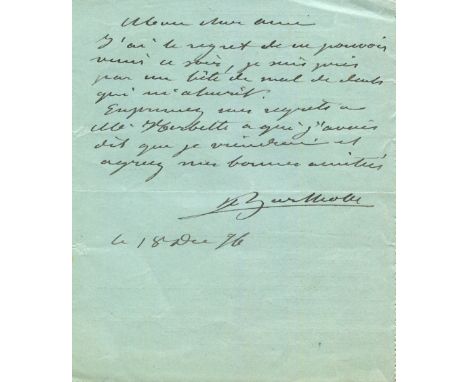 Mon cher ami
J'ai le regret de ne pouvoir
venir ce soir, je suis pris
par un bête de mal de dents
qui m'ahurit.
Exprimez mes regrets a
Mr Herbette a qui j'avais
dit que je viendrai et
agreez mes bonnes amitiés
Bartholdi
le 18 Dec 76